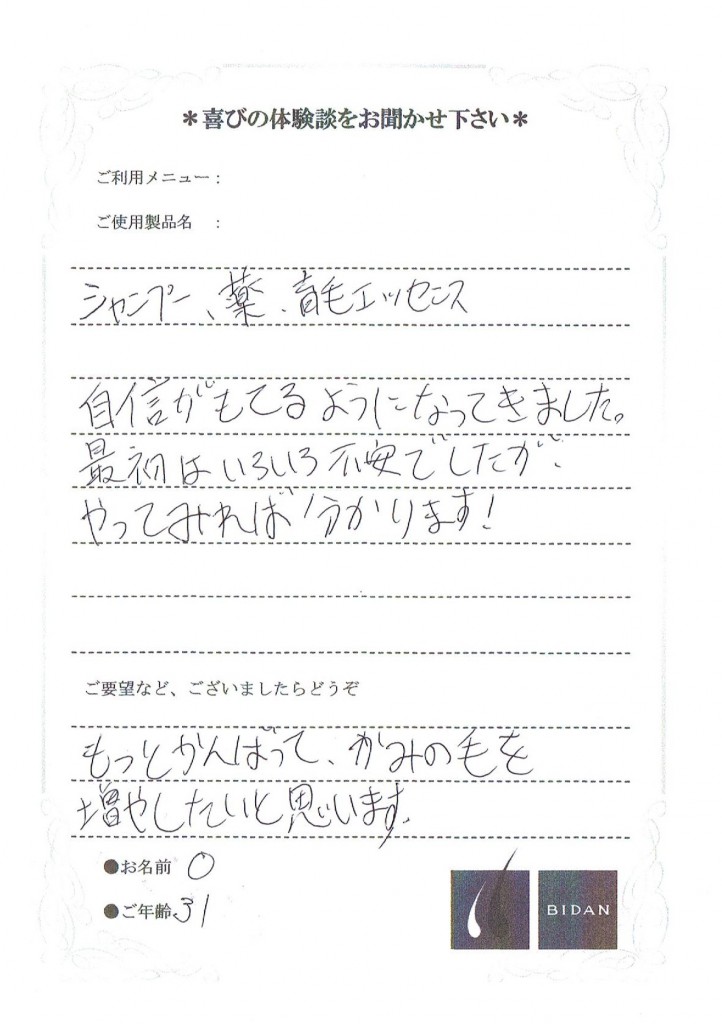 ＊喜びの体験談をお聞かせ下さい＊
ご利用メニュー：
ご使用製品名　：
シャンプー、薬、育毛エッセンス
自信がもてるようになってきました。
最初はいろいろ不安でしたが、
やってみれば分かります！
ご要望など、ございましたらどうぞ
もっとがんばって、かみの毛を
増やしたいと思います。
●お名前 O
●ご年齢 31
BIDAN